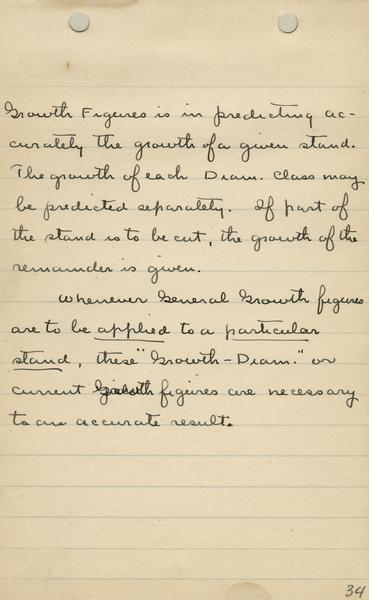 Growth Figures is in predicting ac-
curately the growth of a given stand.
The growth of each Diam. Class may
be predicted separately. If part of
the stand is to be cut, the growth of the
remainder is given.
Whenever General Growth figures
are to be applied to a particular
stand, these "Growth-Diam." or
current Growth figures are necessary
to an accurate result.
34